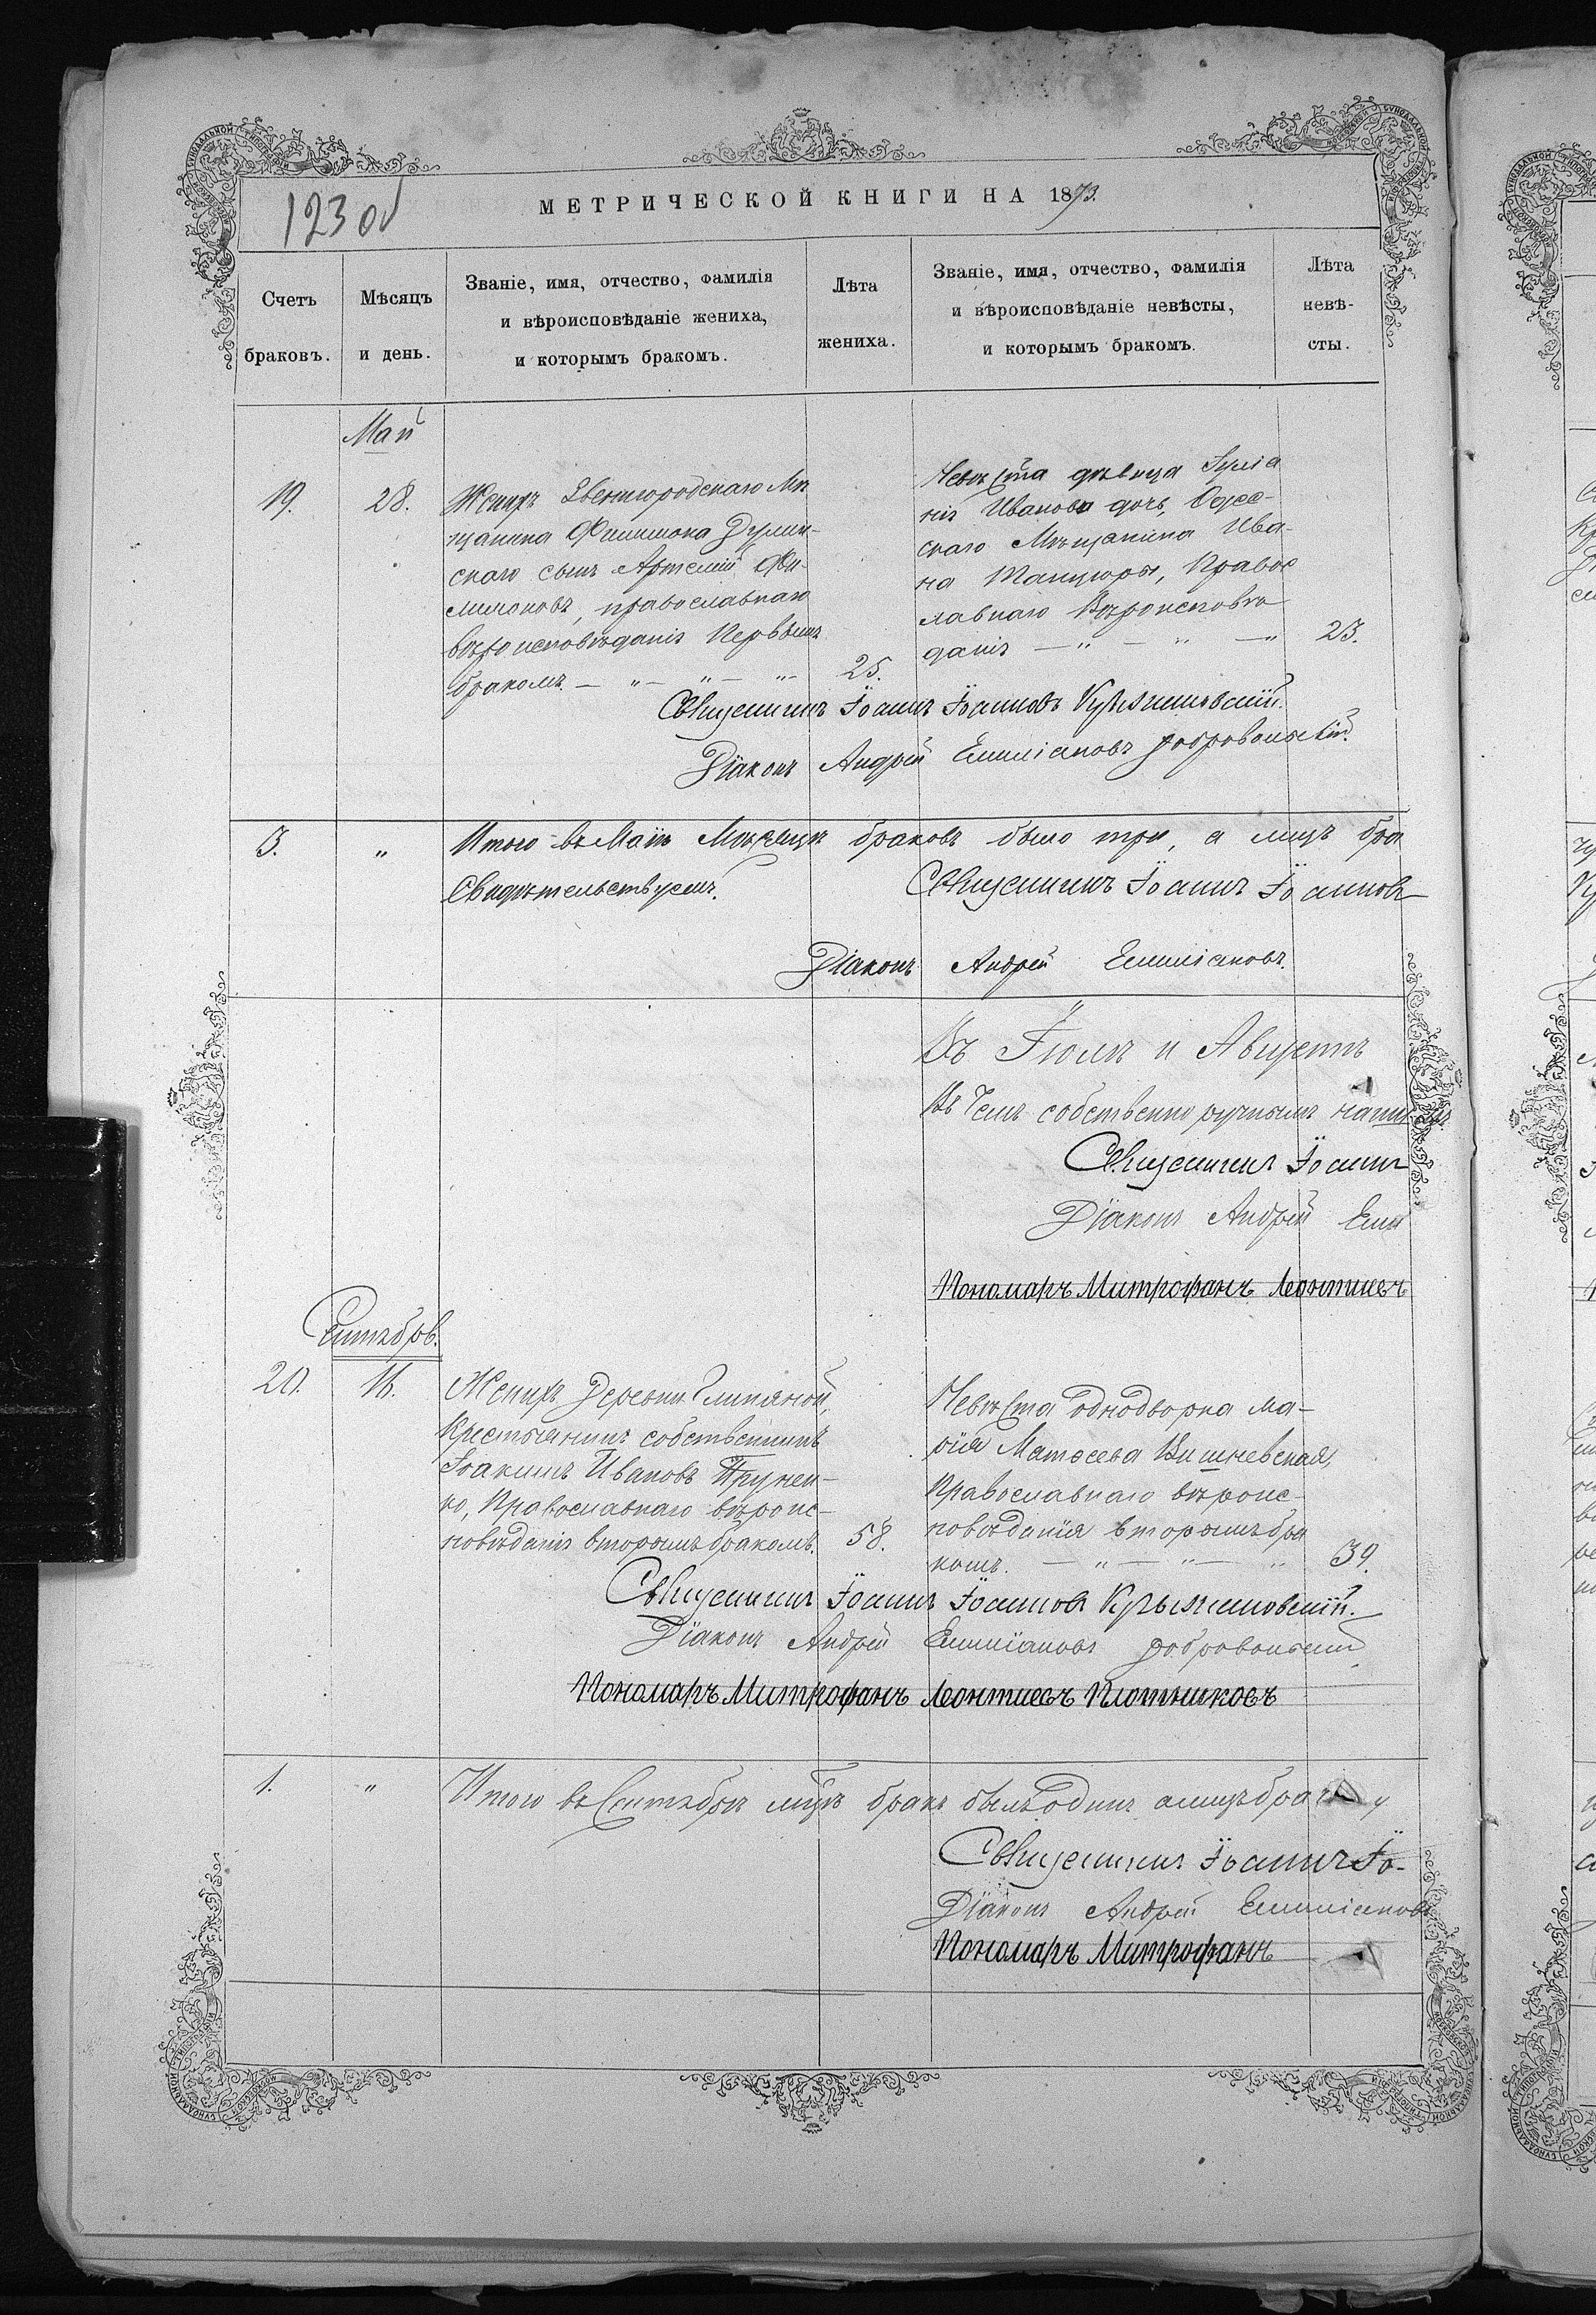 123 об
МЕТРИЧЕСКОЙ КНИГИ НА 1873.
Счетъ браковъ.
Мѣсяцъ и день.
Званіе, имя, отчество, фамилія
и вѣроисповѣданіе жениха,
и которымъ бракомъ.
Лѣта
жениха.
Званіе, имя, отчество, фамилія
и вѣроисповѣданіе невѣсты,
и которымъ бракомъ.
Лѣта
невѣ-
сты.
Май
19.
28.
Женихъ Звенигородскаго Мѣ
щанина Филимона Дулин-
скаго сынъ Артемій Фи-
лимоновъ, православнаго
вѣроисповѣданія Первымъ
бракомъ. — " — " — "
25.
Невѣста дѣвица Іуліа
нія Иванова дочь, Одес-
скаго Мѣщанина Ива-
на Танцюры, Правос
лавнаго Вѣроисповѣ
данія — " — " — "
23.
Священникъ Іоаннъ Іоанновъ Крыжановскій.
Діаконъ Андрей Емиліановъ Добровольскій.
3.
"
Итого въ Маѣ Мѣсяцѣ браковъ было три, а лицъ бра
Свидѣтельствуемъ.
Священникъ Іоаннъ Іоанновъ
Діаконъ Андрей Емиліановъ.
Въ Іюлѣ и Августѣ
Въ Чемъ собственно ручнымъ
Священникъ Іоаннъ
Діаконъ Андрей Емил
Пономарь Митрофанъ Леонтиевъ
Сентябрь.
20.
16.
Женихъ Деревни Глиняной,
Крестьянинъ собственникъ
Іоакимъ Ивановъ
ко, Православнаго вѣроис-
повѣданія вторымъ бракомъ.
58.
Невѣста однодворка Ма-
рія Матѳеева Вишневская,
Православнаго вѣроис-
повѣданія вторымъ бра
комъ. — " — " — "
39.
Священникъ Іоаннъ Іоанновъ Крыжановскій.
Діаконъ Андрей Емиліановъ Добровольскій
Пономарь Митрофанъ Леонтиевъ Плотниковъ
1.
"
Итого въ Сентябрѣ мцѣ бракъ былъ одинъ а лицъ
Священникъ Іоаннъ Іо-
Діаконъ Андрей Емиліановъ
Пономарь Митрофанъ